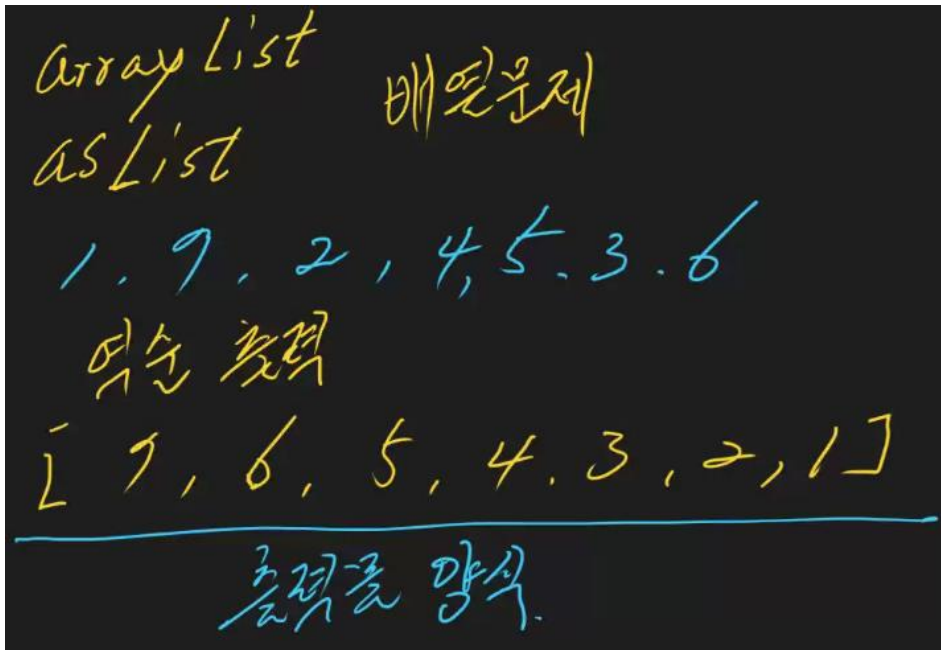 arrayList
배열문제
asList
1, 9, 2, 4, 5, 3, 6
역순 출력
[9, 6, 5, 4, 3, 2, 1]
출력물 양식.